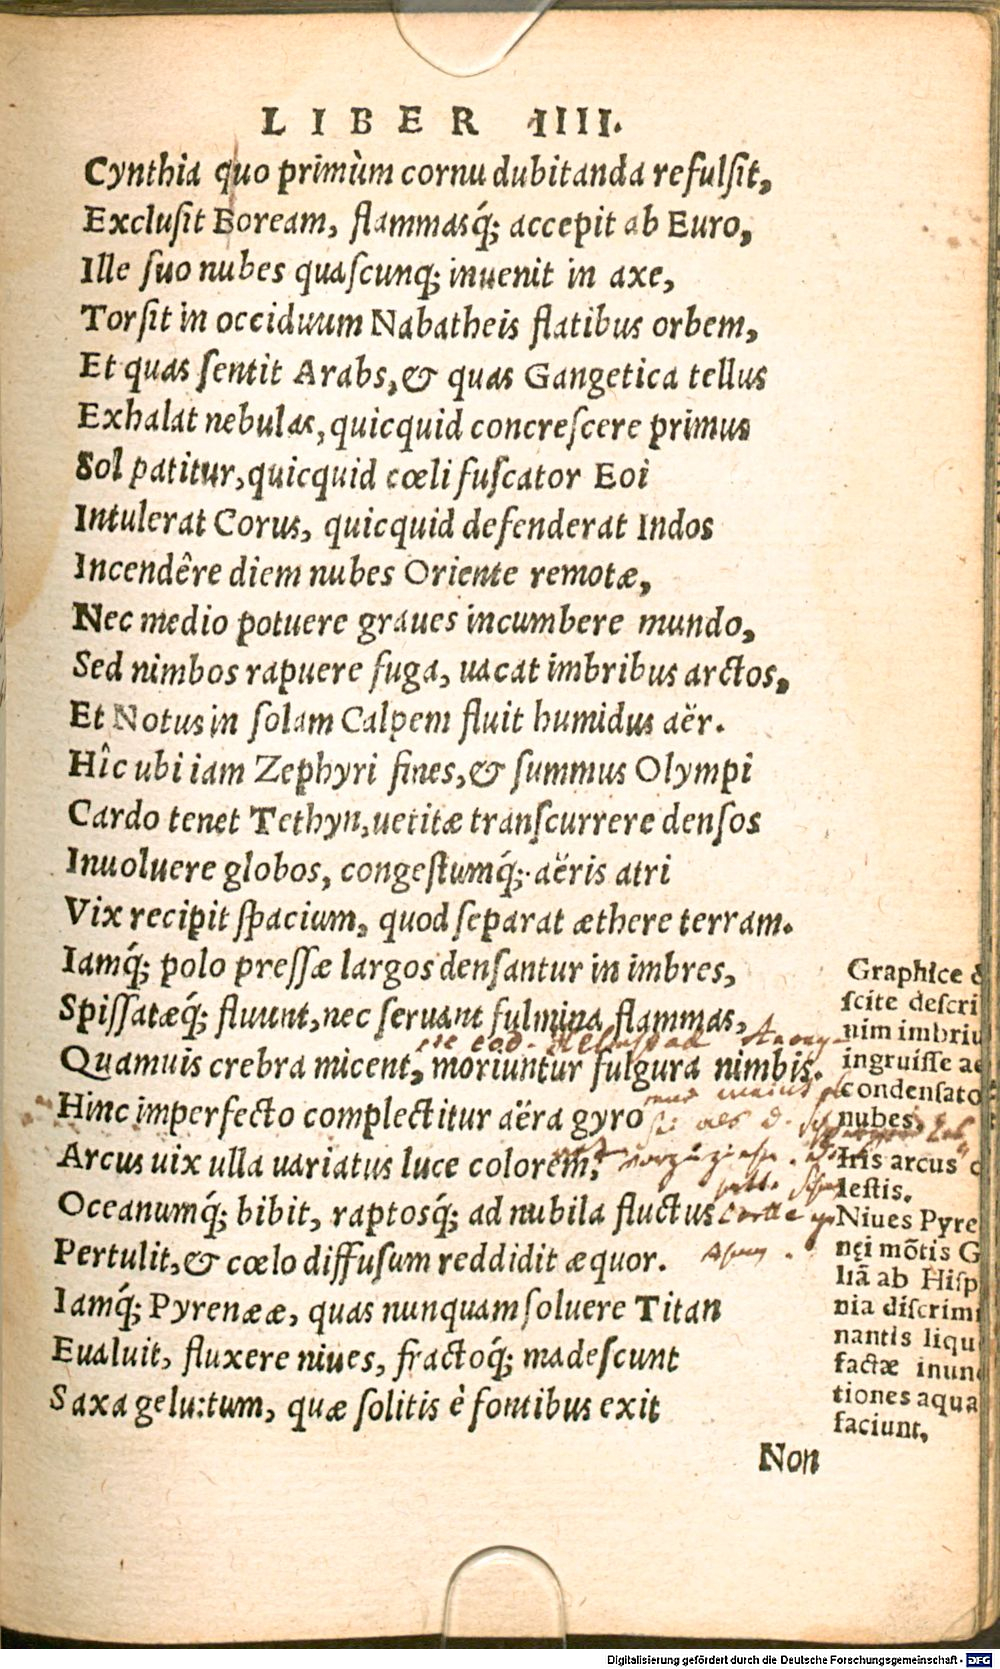 LIBER IIII.
Cynthia quo primùm cornu dubitanda refulſit,
Excluſit Boream, flammasq́; accepit ab Euro,
Ille ſuo nubes quaſcunq; inuenit in axe,
Torſit in occiduum Nabatheis flatibus orbem,
Et quas ſentit Arabs, & quas Gangetica tellus
Exhalat nebulas, quicquid concreſcere primus
Sol patitur, quicquid cœli fuſcator Eoi
Intulerat Corus, quicquid defenderat Indos
Incendêre diem nubes Oriente remotæ,
Nec medio potuere graues incumbere mundo,
Sed nimbos rapuere fuga, uacat imbribus arctos,
Et Notus in ſolam Calpem fluit humidus aër.
Hîc ubi iam Zephyri fines, & ſummus Olympi
Cardo tenet Tethyn, uetitæ tranſcurrere denſos
Inuoluere globos, congeſtumq́; aëris atri
Vix recipit ſpacium, quod ſeparat æthere terram.
Iamq́; polo preſſæ largos denſantur in imbres,
Spiſſatæq́; fluunt, nec ſeruant fulmina flammas,
Quamuis crebra micent, moriuntur fulgura nimbis.
Hinc imperfecto complectitur aëra gyro
Arcus uix ulla uariatus luce colorem,
Oceanumq́; bibit, raptosq́; ad nubila fluctus
Pertulit, & cœlo diffuſum reddidit æquor.
Iamq́; Pyrenææ, quas nunquam ſoluere Titan
Eualuit, fluxere niues, fractoq́; madeſcunt
Saxa gelu: tum, quæ ſolitis è fontibus exit
Non
Graphice &
ſcite deſcri
nim imbriu
ingruiſſe ae
condenſato
nubes.
Iris arcus c
leſtis.
Niues Pyre
nęi mõtis G
liã ab Hiſp
nia diſcrimi
nantis liqu
factæ inun
tiones aqua
faciunt,
Digitalisierung gefördert durch die Deutsche Forschungsgemeinschaft - DFG